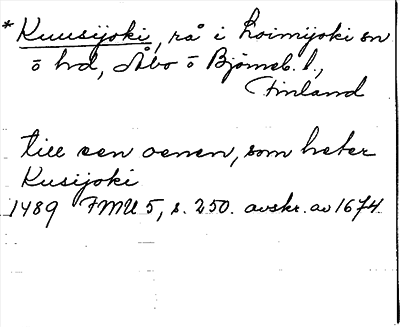 * Kuusijoki, rå i Loimijoki sn
o hd, Åbo o Björneb. l.,
Finland
till een oenen, som heter
Kusijoki
1489 FMU 5, s. 250. avskr. av 1674.